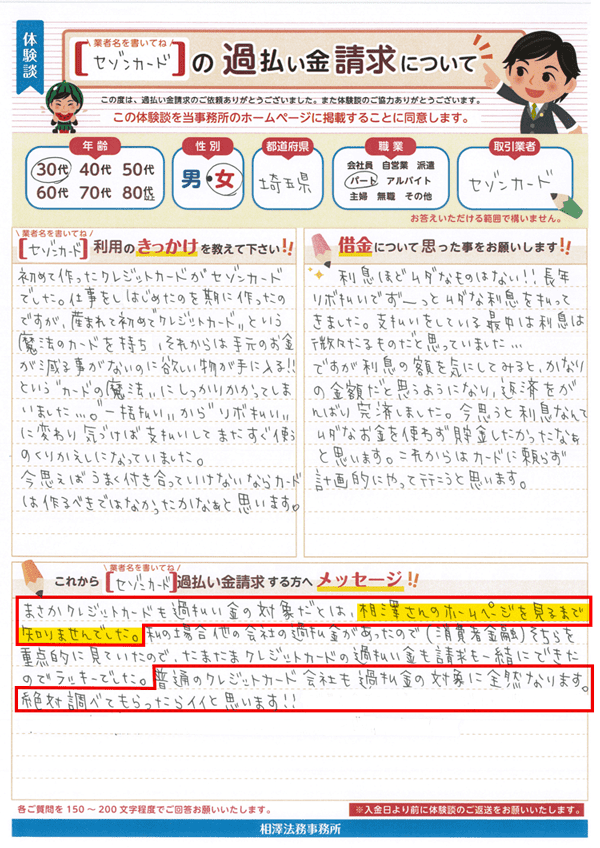 体験談
業者名を書いてね
[セゾンカード]の過払い金請求について
この度は、過払い金請求のご依頼ありがとうございました。また体験談のご協力ありがとうございます。
この体験談を当事務所のホームページに掲載することに同意します。
年齢
30代 40代 50代
60代 70代 80代
性別
男・女
都道府県
埼玉県
職業
会社員 自営業 派遣
パート アルバイト
主婦 無職 その他
取引業者
セゾンカード
お答えいただける範囲で構いません。
業者名を書いてね
[セゾンカード]利用のきっかけを教えて下さい!!
初めて作ったクレジットカードがセゾンカード
でした。仕事をしはじめたのを期に作ったの
ですが、産まれて初めて"クレジットカード"という
魔法のカードを持ち、それからは手元のお金
が減る事がないのに欲しい物が手に入る!!
という"カードの魔法"にしっかりかかってしま
いました…。"一括払い"から"リボ払い"
に変わり気づけば支払いしてまたすぐ使う
のくりかえしになっていました。
今思えばうまく付き合っていけないならカード
は作るべきではなかったかなぁと思います。
借金について思った事をお願いします!!
利息ほどムダなものはない!!長年
リボ払いでずーっとムダな利息を払って
きました。支払いをしている最中は利息は
微々たるものだと思っていました…
ですが利息の額を気にしてみると、かなり
の金額だと思うようになり、返済をが
んばり完済しました。今思うと利息なんて
ムダなお金を使わず貯金したかったなぁ
と思います。これからはカードに頼らず
計画的にやって行こうと思います。
業者名を書いてね
これから[セゾンカード]過払い金請求する方へメッセージ!!
まさかクレジットカードも過払い金の対象だとは、相澤さんのホームページを見るまで
知りませんでした。私の場合他の会社の過払金があったので(消費者金融)そちらを
重点的に見ていたので、たまたまクレジットカードの過払い金も請求も一緒にできた
のでラッキーでした。普通のクレジットカード会社も過払金の対象に全然なります。
絶対調べてもらったらイイと思います!!
各ご質問を150～200文字程度でご回答お願いいたします。
※入金日より前に体験談のご返送をお願いいたします。
相澤法務事務所